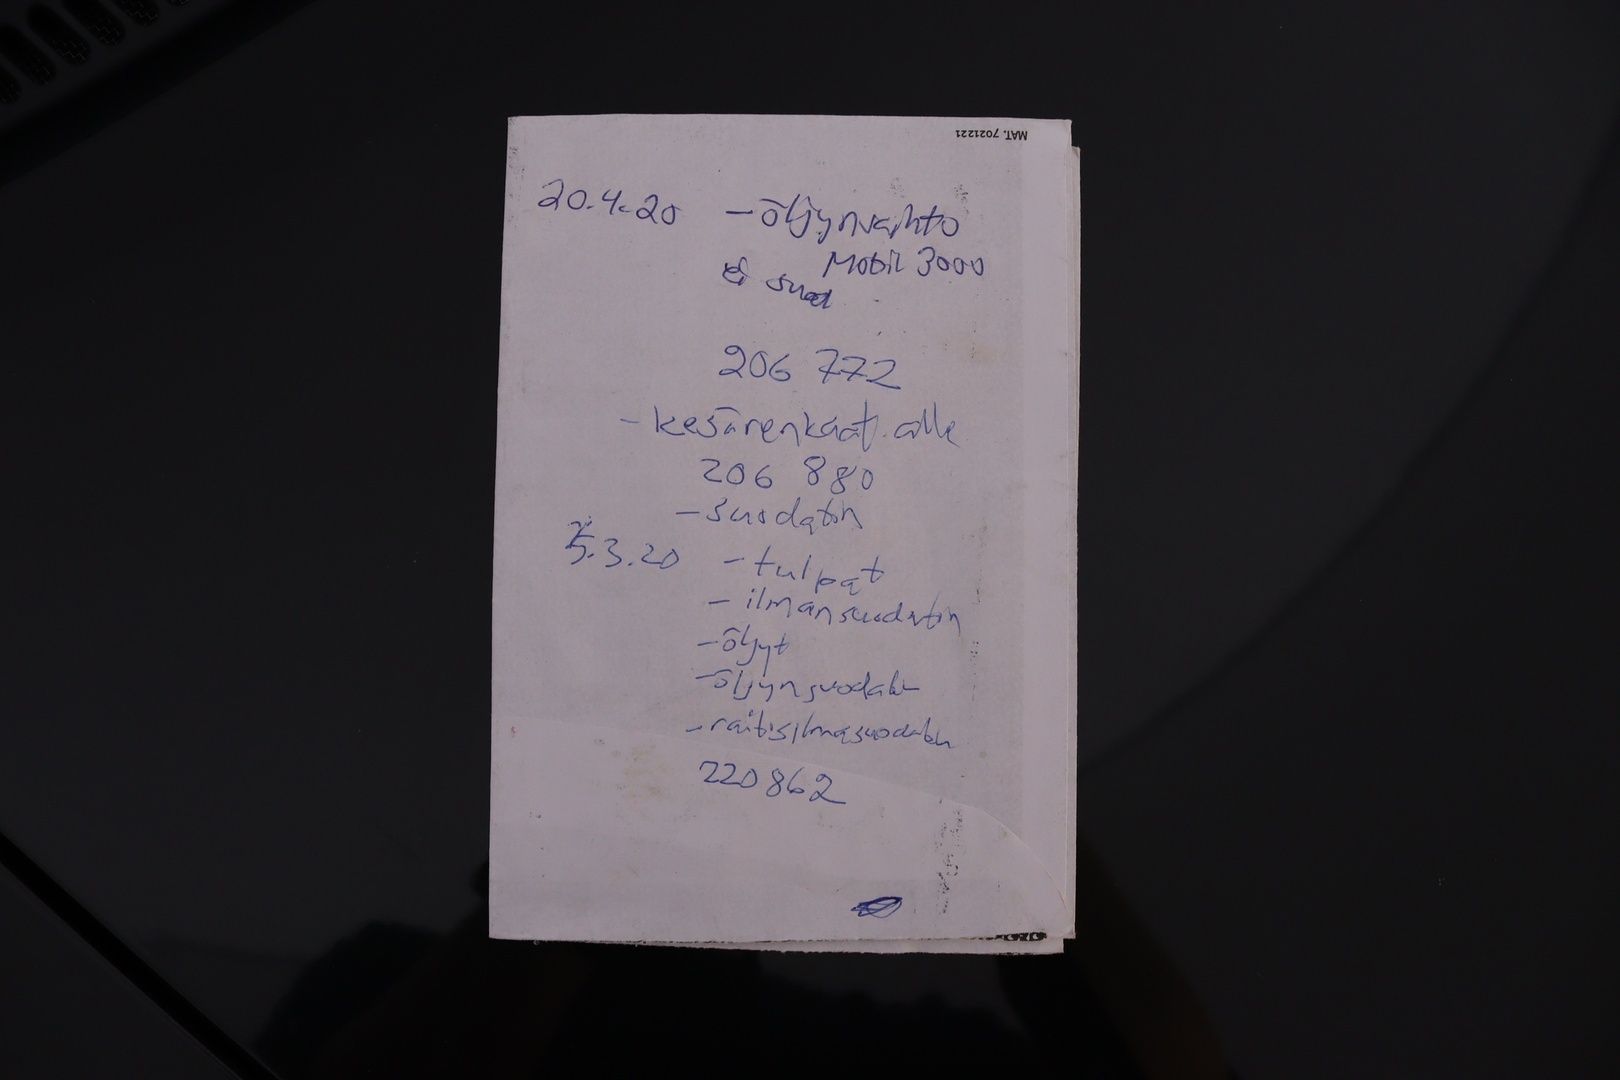 MAT. 7021221
20.4.20 - öljynvaihto
Mobil 3000
ei suod
206 772
- kesärenkaat alle
206 880
- suodatin
5.3.20 - tulpat
- ilmansuodatin
- öljyt
- öljynsuodatin
- raitisilmasuodatin
220862